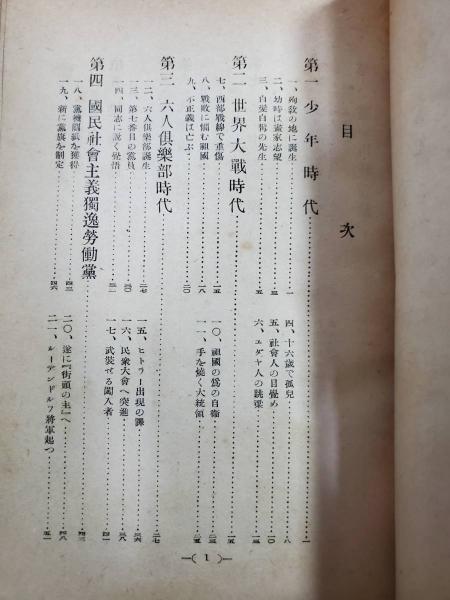 目次
第一 少年時代……一
一、殉教の地に誕生……一
二、幼時は畫家志望……三
三、白髪白髯の先生……五
四、十六歳で孤兒……八
五、社會人の目覺め……一〇
六、ユダヤ人の跳梁……一三
第二 世界大戰時代……一五
七、西部戰線で重傷……一五
八、戰敗に惱む祖國……一八
九、不正義は亡ぶ……二〇
一〇、祖國の爲の自衛……二三
一一、手を燒く大統領……二五
第三 六人倶樂部時代……二七
一二、六人倶樂部誕生……二七
一三、第七番目の黨員……三〇
一四、同志に説く覺悟……三一
一五、ヒトラー出現の譯……三六
一六、民衆大會へ突進……三八
一七、武裝せる闖入者……四一
第四 國民社會主義獨逸勞働黨……四三
一八、黨機關紙を獲得……四三
一九、新に黨旗を制定……四六
二〇、遂に『街頭の主』へ……四八
二一、ルーデンドルフ將軍起つ……五一
—( 1 )—